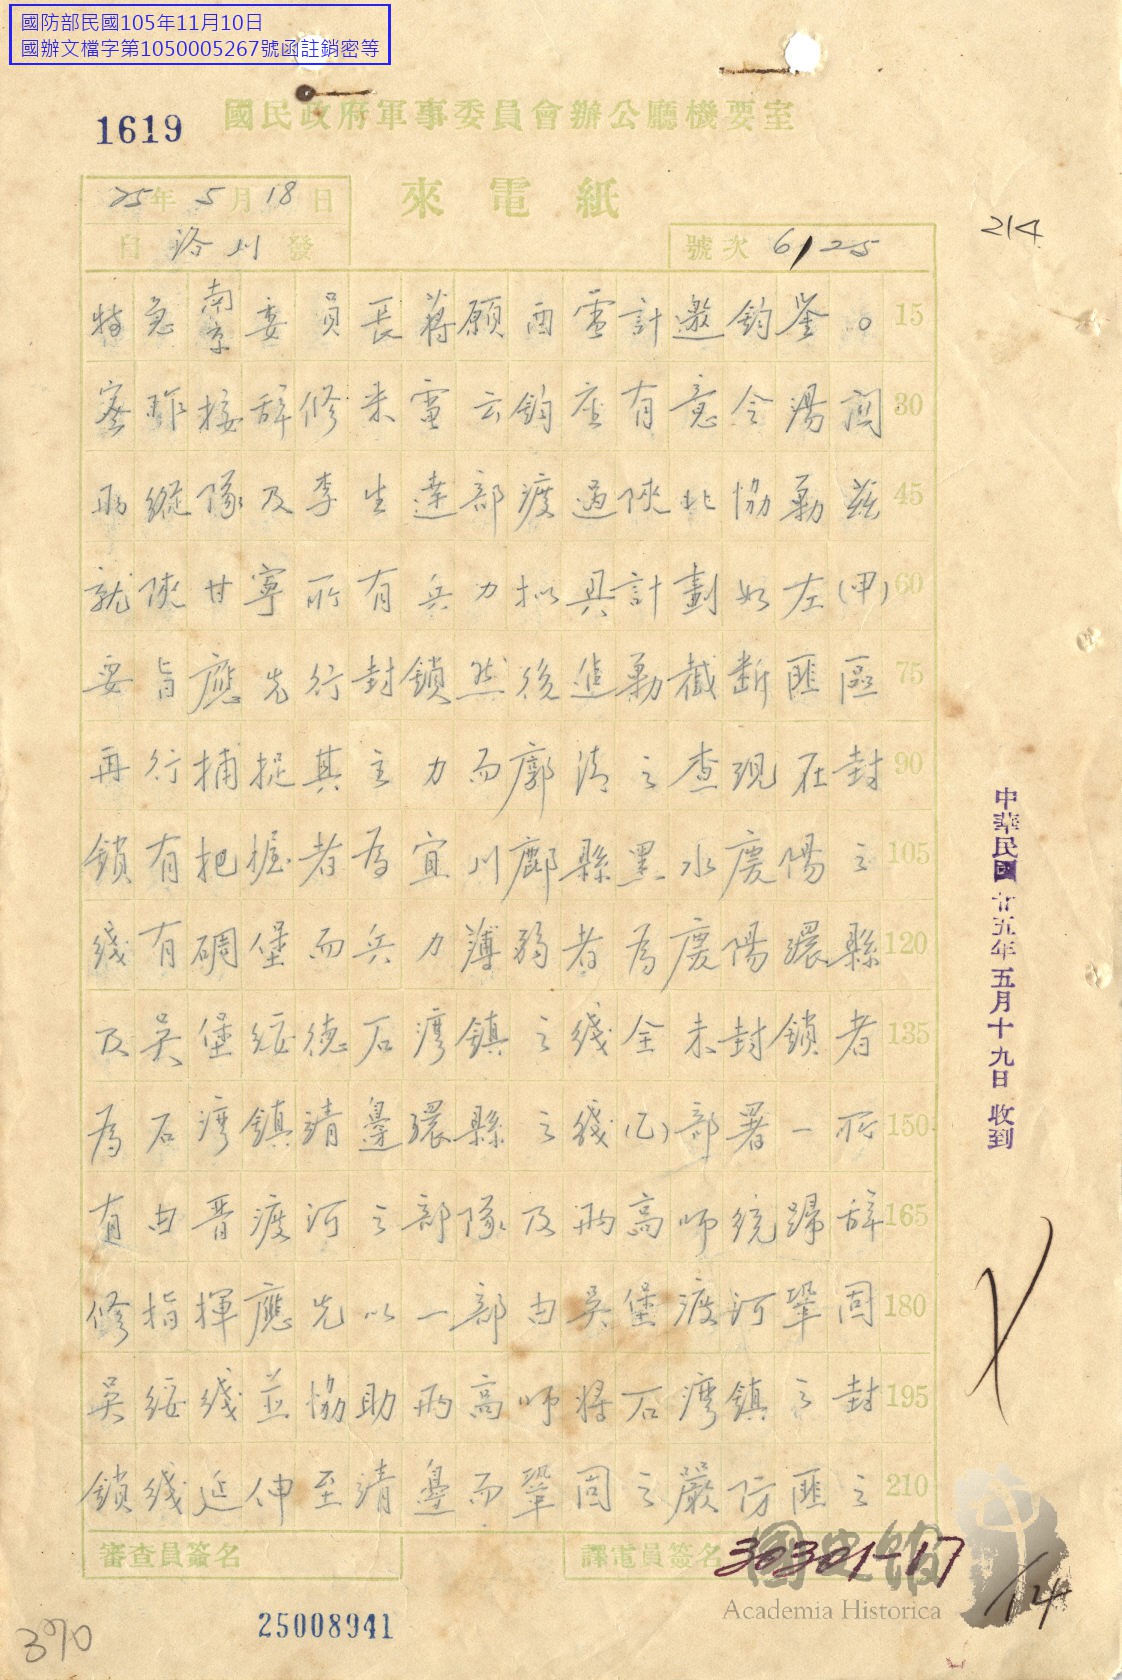 國防部民國105年11月10日
國辦文檔字第1050005267號函註銷密等
國民政府軍事委員會辦公廳機要室
1619
來電紙
25年5月18日
自洛川發
號次 6125
214
特急南京委員長蔣願西電計邀鈞鑒。 15
密昨接辞修来電云鈞座有意令湯関 30
兩縱隊及李生達部渡過陝北協勦茲 45
就陝甘寧所有兵力拟具計劃如左(甲) 60
要旨應先行封鎖然後進勦截断匪區 75
再行捕捉其主力而廓清之查現在封 90
鎖有把握者為宜川鄜縣黑水慶陽之 105
綫有碉堡而兵力薄弱者為慶陽環縣 120
及吳堡綏德石灣鎮之綫全未封鎖者 135
為石灣鎮靖邊環縣之綫(乙)部署一所 150
有由晋渡河之部隊及兩高師統歸辞 165
修指揮應先以一部由吳堡渡河鞏固 180
吳綏綫並協助兩高師将石灣鎮之封 195
鎖綫延伸至靖邊而鞏固之嚴防匪之 210
中華民國廿五年五月十九日收到
審查員簽名
譯電員簽名
30301-17
國史館
Academia Historica
14
25008941
390